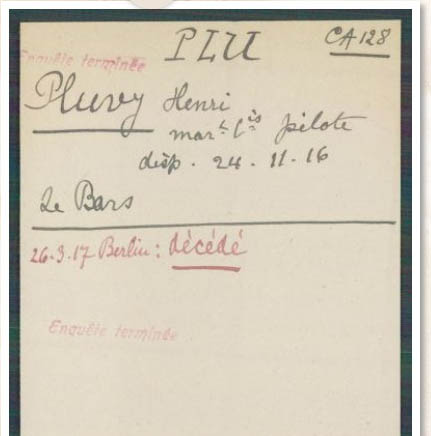 PLU
CA 128
Enquête terminée
Pluvy Henri
mar. l is pilote
disp. 24.11.16
Le Bars
26.3.17 Berlin: décédé
Enquête terminée